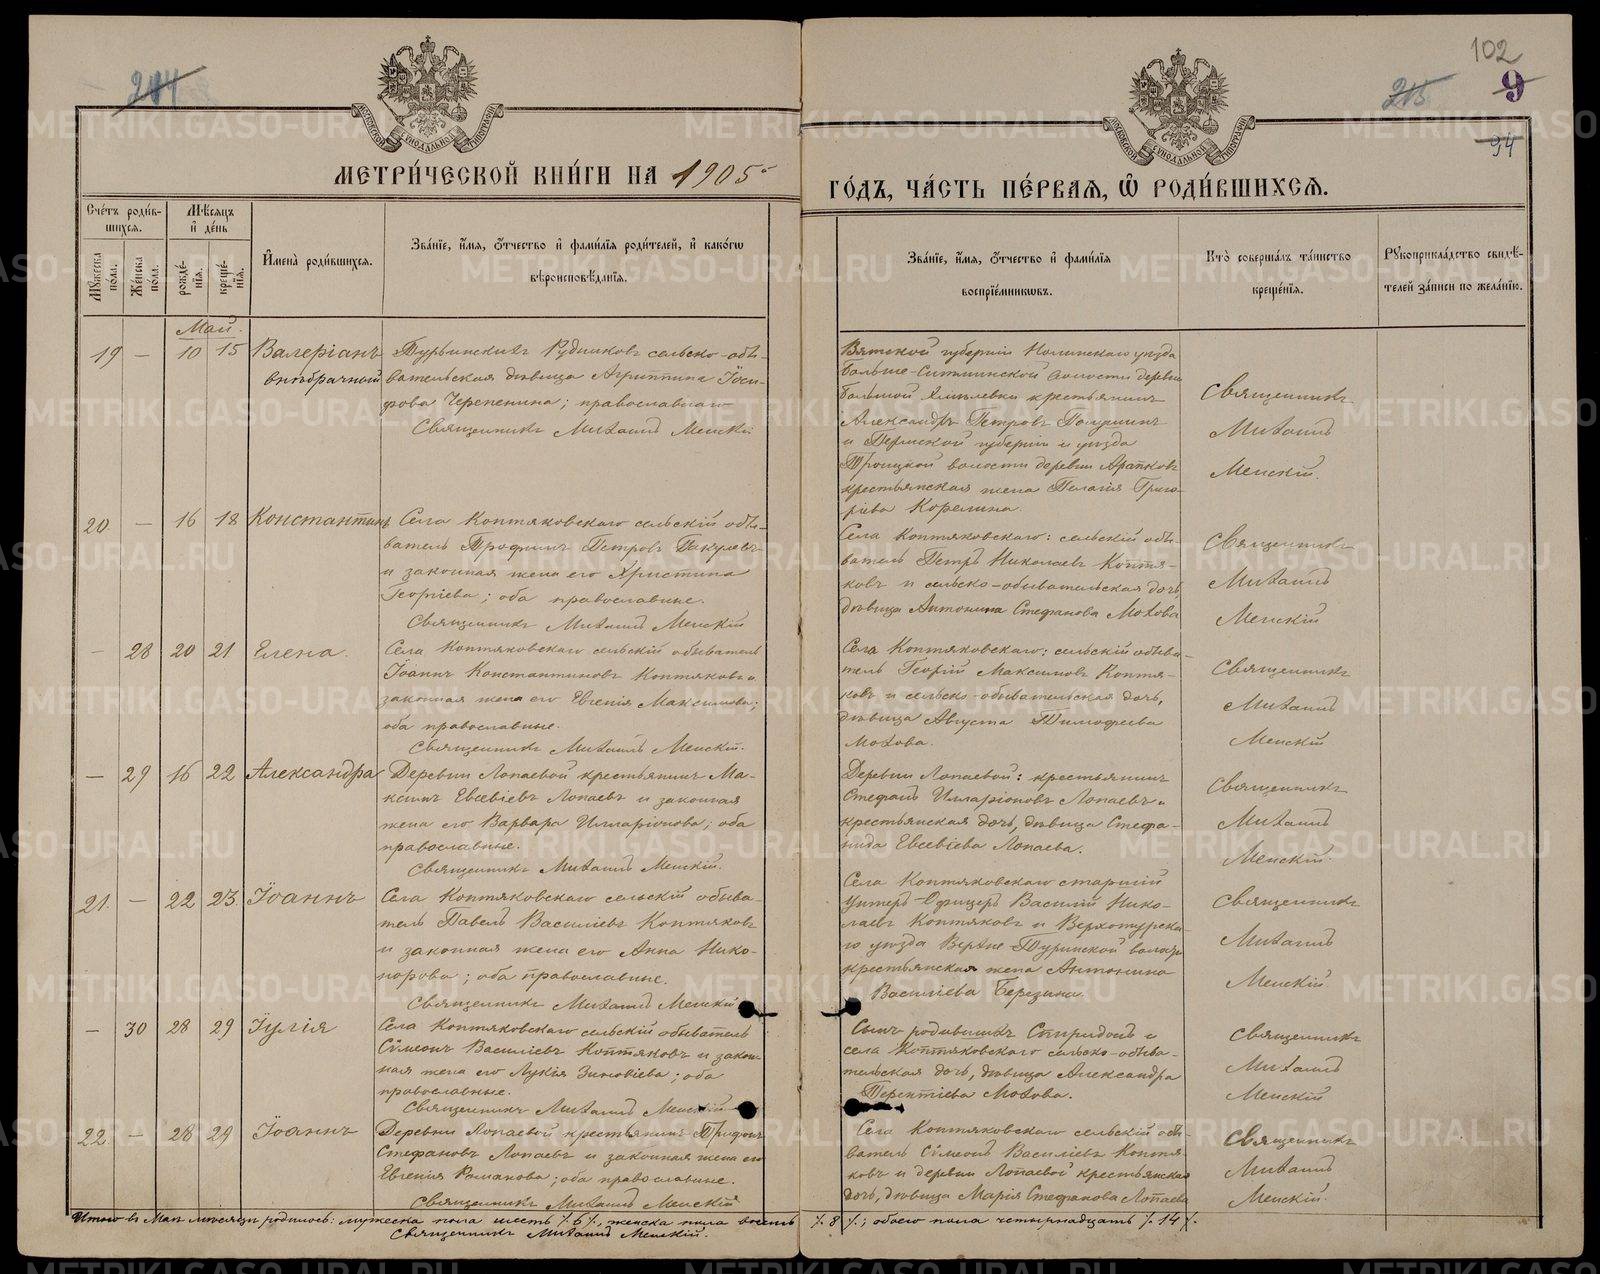 214
102
215
9
94
МОСКОВСКОЙ СѴНОДАЛЬНОЙ ТИПОГРАФІИ
МОСКОВСКОЙ СѴНОДАЛЬНОЙ ТИПОГРАФІИ
МЕТРИ́ЧЕСКОЙ КНИ́ГИ НА 1905
ГО́ДЪ, ЧА́СТЬ ПЕ́РВАЯ, Ѿ РОДИ́ВШИХСЯ.
Сче́тъ роди́в-
шихся.
Мѣсяцъ
и҆ де́нь
Му́жеска
по́ла.
Же́нска
по́ла.
рожде́-
нїя.
креще́-
нїя.
И҆мена̀ роди́вшихся.
Зва́нїе, и҆́мя, ѻ҆́тчество и҆ фами́лїя роди́телей, и҆ како́гѡ
вѣроисповѣ́данїя.
Зва́нїе, и҆́мя, ѻ҆́тчество и҆ фами́лїя
воспрїе́мникѡвъ.
Кто̀ соверша́лъ та́инство
креще́нїя.
Рꙋкоприкла́дство свидѣ́-
телей за́писи по жела́нїю.
Май.
19 — 10 15 Валеріанъ
внѣбрачный
Турьинскихъ Рудниковъ сельско-обы-
вательская дѣвица Агриппина Іоси-
фова Черепенина; православнаго
Священникъ Михаилъ Менскій
Вятской губерніи Нолинскаго уѣзда
Больше-Ситминской волости деревни
Большой крестьянинъ
Александръ Петровъ
и Пермской губерніи и уѣзда
Троицкой волости деревни
крестьянская жена Пелагія Григо-
ріева Корелина.
Священникъ
Михаилъ
Менскій.
20 — 16 18 Константинъ
Села Коптяковскаго сельскій обы-
ватель Трофимъ Петровъ Бакулевъ
и законная жена его Христина
Георгіева; оба православные.
Священникъ Михаилъ Менскій
Села Коптяковскаго: сельскій обы-
ватель Петръ Николаевъ Коптя-
ковъ и сельско-обывательская дочь,
дѣвица Антонина Стефанова Мохова
Священникъ
Михаилъ
Менскій
— 28 20 21 Елена.
Села Коптяковскаго сельскій обыватель
Іоаннъ Константиновъ Коптяковъ и
законная жена его Евгенія Максимова;
оба православные.
Священникъ Михаилъ Менскій.
Села Коптяковскаго: сельскій обыва-
тель Георгій Максимовъ Коптя-
ковъ и сельско-обывательская дочь,
дѣвица Августа Тимофеева
Мохова.
Священникъ
Михаилъ
Менскій
— 29 16 22 Александра
Деревни Лопаевой крестьянинъ Ма-
ксимъ Евсевіевъ Лопаевъ и законная
жена его Варвара Илларіонова; оба
православные.
Священникъ Михаилъ Менскій.
Деревни Лопаевой: крестьянинъ
Стефанъ Илларіоновъ Лопаевъ и
крестьянская дочь, дѣвица Стефа-
нида Евсевіева Лопаева.
Священникъ
Михаилъ
Менскій.
21. — 22 23 Іоаннъ
Села Коптяковскаго сельскій обыва-
тель Павелъ Василіевъ Коптяковъ
и законная жена его Анна Нико-
норова; оба православные.
Священникъ Михаилъ Менскій
Села Коптяковскаго старшій
Унтеръ-Офицеръ Василій Нико-
лаевъ Коптяковъ и Верхотурска-
го уѣзда Верхне-Туринской волости
крестьянская жена Антонина
Василіева Березина.
Священникъ
Михаилъ
Менскій
— 30 28 29 Іулія
Села Коптяковскаго сельскій обыватель
Сѵмеонъ Василіевъ Коптяковъ и закон-
ная жена его Лукія Зиновіева; оба
православные.
Священникъ Михаилъ Менскій
Сынъ родившихъ Спиридонъ и
села Коптяковскаго сельско-обыва-
тельская дочь, дѣвица Александра
Терентіева Мохова.
Священникъ
Михаилъ
Менскій
22. — 28 29 Іоаннъ
Деревни Лопаевой крестьянинъ Трифонъ
Стефановъ Лопаевъ и законная жена его
Евгенія Романова; оба православные.
Священникъ Михаилъ Менскій
Села Коптяковскаго сельскій обы-
ватель Сѵмеонъ Василіевъ Коптя-
ковъ и деревни Лопаевой крестьянская
дочь, дѣвица Марія Стефанова Лопаева
Священникъ
Михаилъ
Менскій.
Итого въ Маѣ мѣсяцѣ родилось: мужеска пола шесть /. 6 /., женска пола восемь /. 8 /.; обоего пола четырнадцать /. 14 /.
Священникъ Михаилъ Менскій.
METRIKI.GASO-URAL.RU